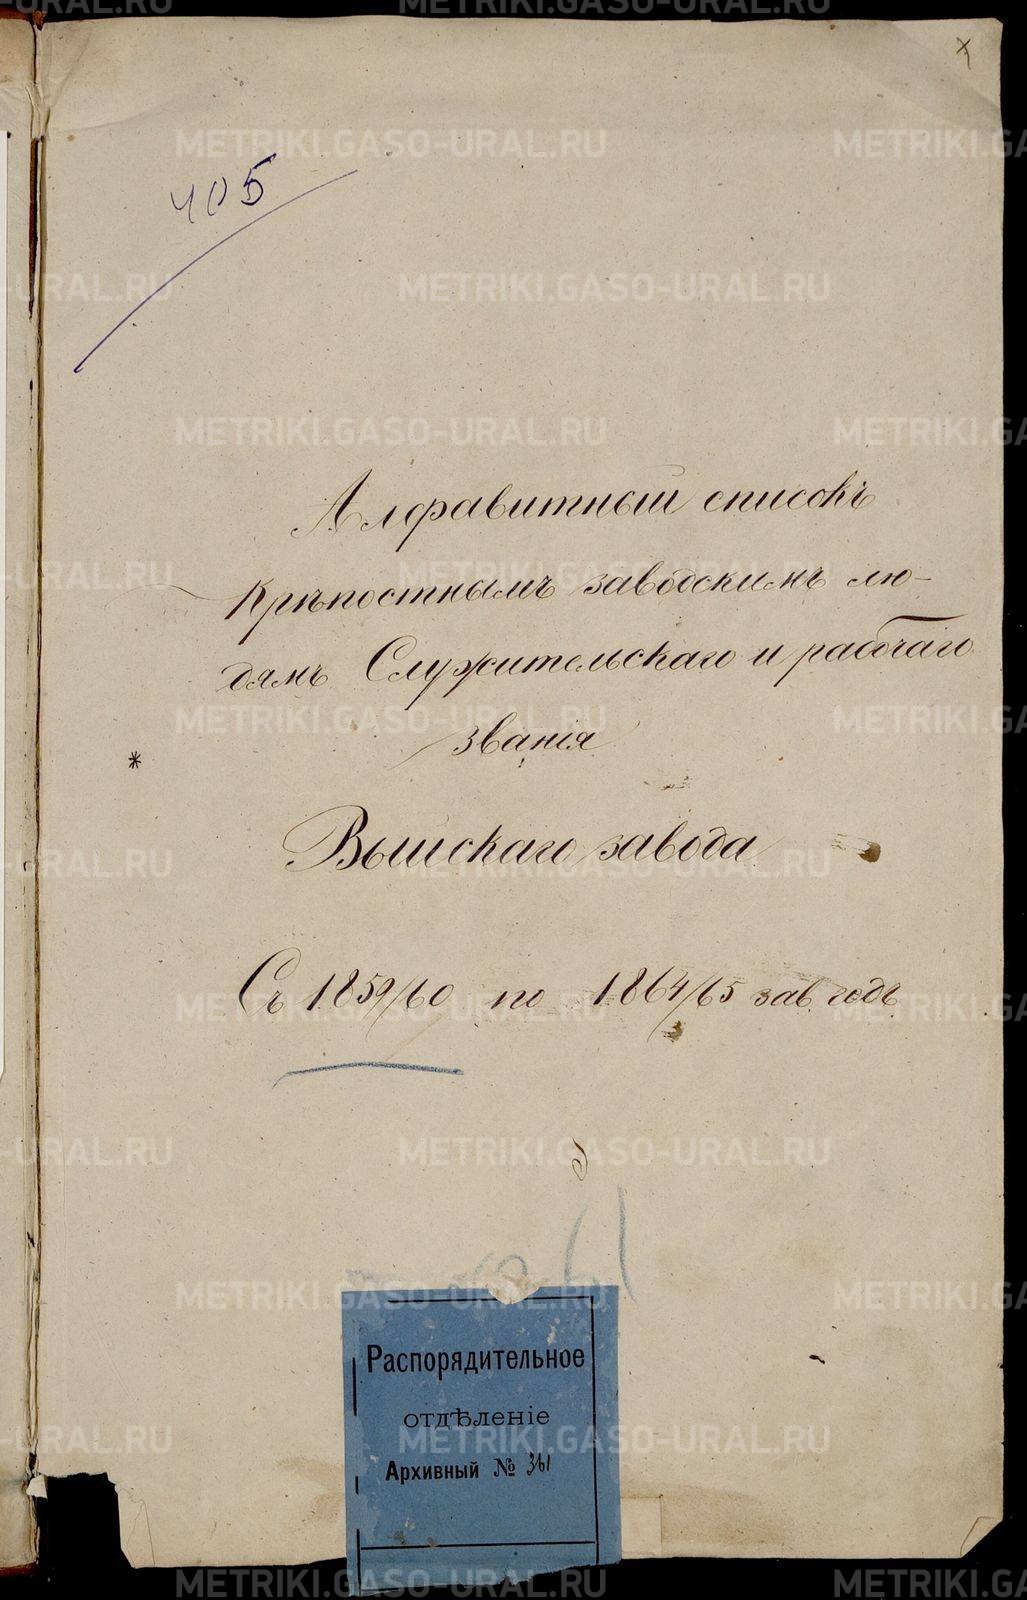 405
Алфавитный списокъ
Крѣпостнымъ заводскимъ лю-
дямъ Служительскаго и рабочаго
званія
*
Выйскаго завода
Съ 1859/60 по 1864/65 зав. годъ
Распорядительное
отдѣленіе
Архивный № 361
METRIKI.GASO-URAL.RU